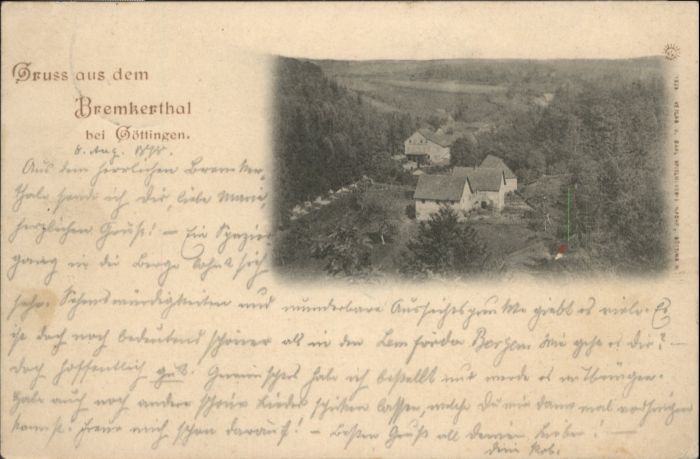 Gruss aus dem
Bremkerthal
bei Göttingen.
8. Aug. 1898.
Aus dem herrlichen Bremker
Thale sende ich Dir, liebe Marie
herzlichen Gruß! – Ein Spazier
gang in die Berge lohnt sich
sehr. Sehenswürdigkeiten und wunderbare Aussichtspunkte giebt es viele. Es
ist doch noch bedeutend schöner als in den Lemförder Bergen. Wie geht es Dir? –
doch hoffentlich gut. habe ich bestellt und werde es
habe auch noch andere schöne Lieder schicken lassen, welche Du mir dann mal vorsingen
kannst. Freue mich schon darauf! – Besten Gruß all Deinen Lieben! –